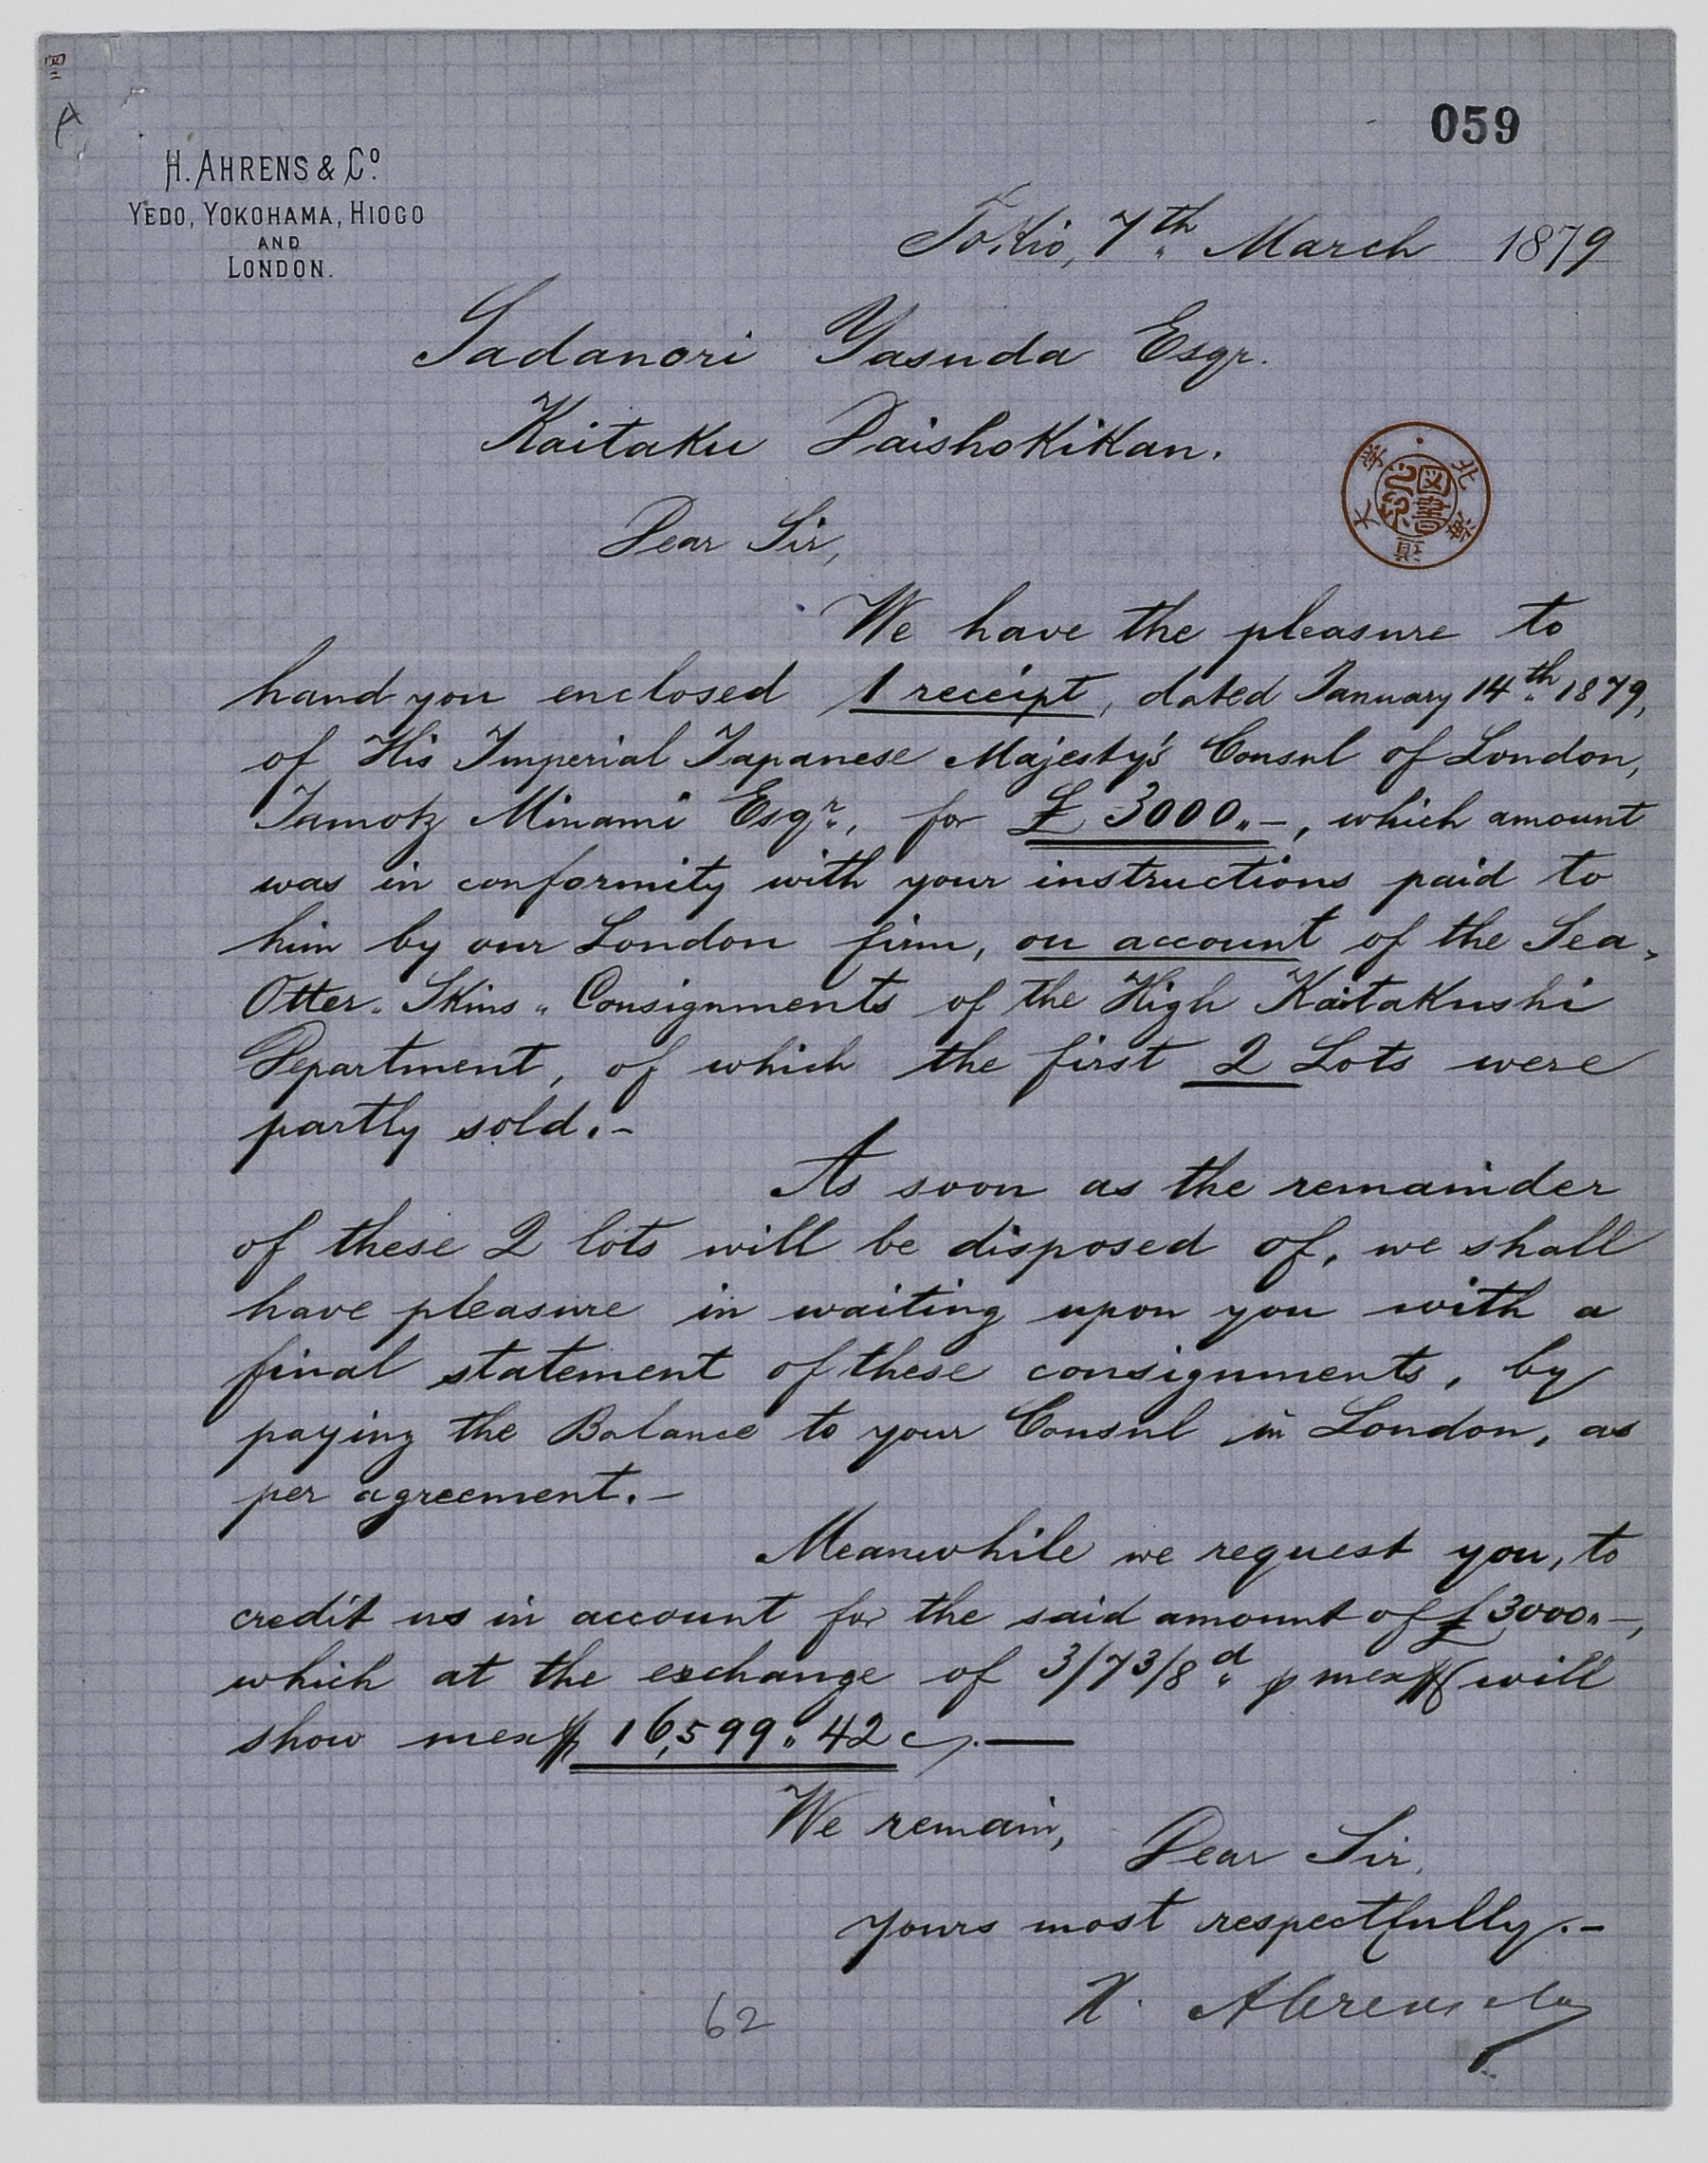 059
H. AHRENS & Cº
YEDO, YOKOHAMA, HIOGO
AND
LONDON.
Tokio, 7th March 1879
Sadanori Yasuda Esqr.
Kaitaku Daishokikan.
北海道大学
図書
Dear Sir,
We have the pleasure to
hand you enclosed 1 receipt, dated January 14th 1879,
of His Imperial Japanese Majesty's Consul of London,
Tamotz Minami Esqr., for £ 3000.-, which amount
was in conformity with your instructions paid to
him by our London firm, on account of the Sea-
Otter-Skins-Consignments of the High Kaitakushi
Department, of which the first 2 Lots were
partly sold.-
As soon as the remainder
of these 2 lots will be disposed of, we shall
have pleasure in waiting upon you with a
final statement of these consignments, by
paying the Balance to your Consul in London, as
per agreement.-
Meanwhile we request you, to
credit us in account for the said amount of £3000.-,
which at the exchange of 3/7 3/8 d p mex$ will
show mex$ 16,599.42 c/.—
We remain,
Dear Sir,
yours most respectfully.-
H. Ahrens & Co
62